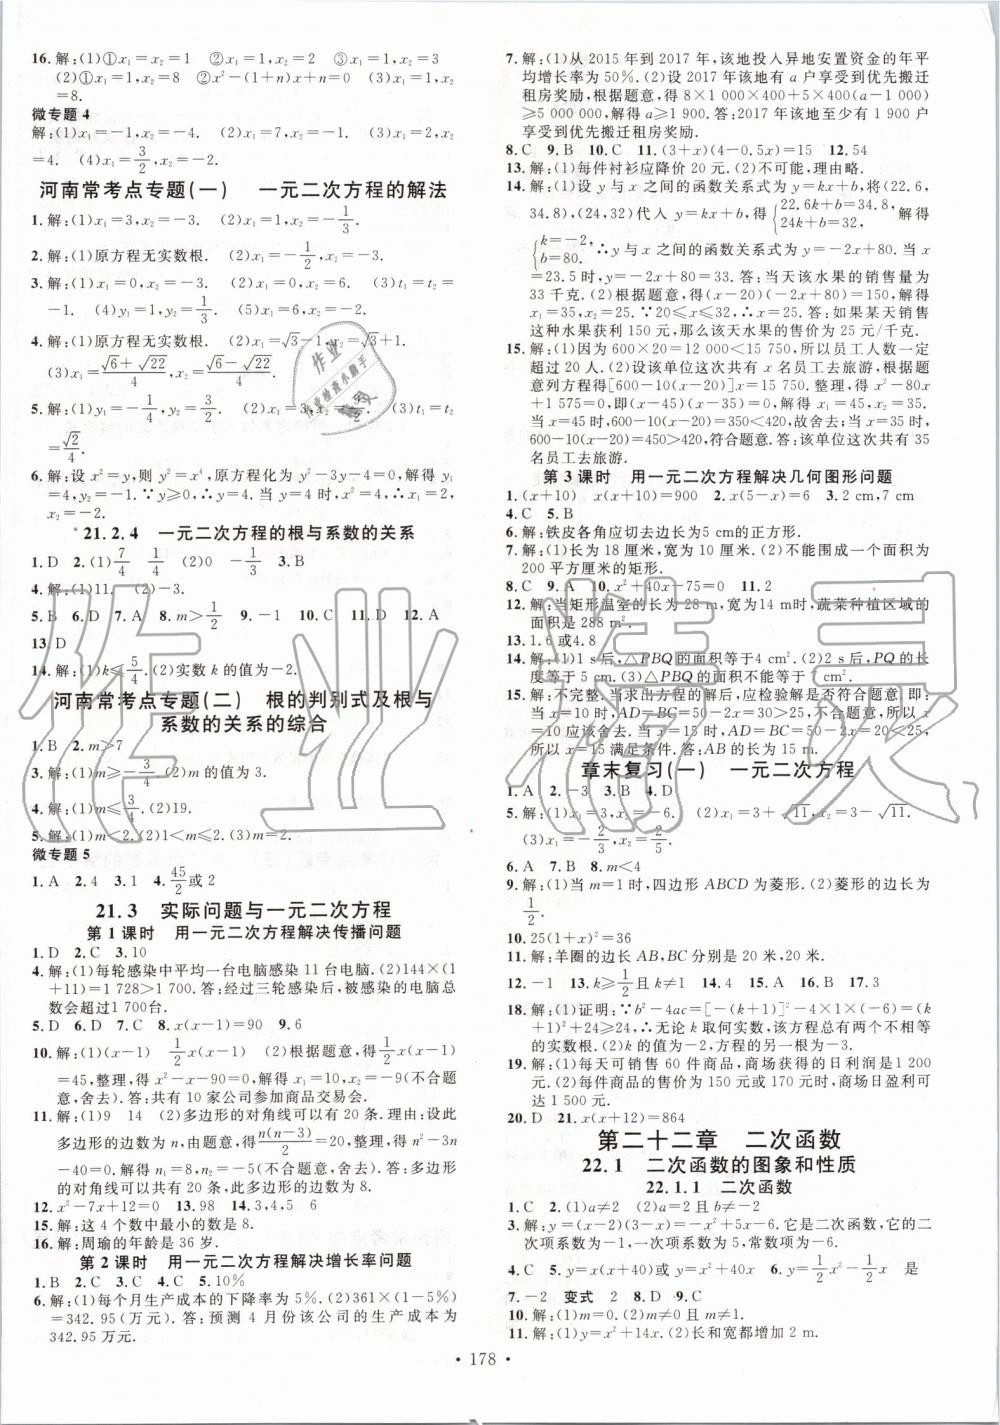 16. 解:(1)①x₁=x₂=1 ②x₁=1,x₂=2 ③x₁=1,x₂=3
(2)①x₁=1,x₂=8 ②x²-(1+n)x+n=0 (3)x₁=1,x₂
=8.
微专题 4
解:(1)x₁=-1,x₂=-4. (2)x₁=7,x₂=1. (3)x₁=-2,x₂
=4. (4)x₁=3/2,x₂=-2.
河南常考点专题(一) 一元二次方程的解法
1. 解:(1)x₁=3,x₂=-3. (2)x₁=1,x₂=-1/3.
2. 解:(1)原方程无实数根. (2)x₁=-1,x₂=3.
3. 解:(1)x₁=0,x₂=-3. (2)x₁=0,x₂=6. (3)t₁=t₂=
-1. (4)y₁=1,y₂=1/3. (5)x₁=-2,x₂=4.
4. 解:(1)原方程无实数根. (2)x₁=√3-1,x₂=√3+1.
(3)x₁=(√6+√22)/4,x₂=(√6-√22)/4.
5. 解:(1)y₁=-1/4,y₂=3/2. (2)x₁=3,x₂=9. (3)x₁=x₂
=√2/4.
6. 解:设 x²=y,则 y²=x⁴,原方程化为 y²-3y-4=0.解得y₁
=4,y₂=-1.∵y≥0,∴y=4.当 y=4 时,x²=4.∴x₁=2,
x₂=-2.
*21.2.4 一元二次方程的根与系数的关系
1. D 2.(1)7/4 1/4 (2)0 -3 3. B
4. 解:(1)11. (2)-3.
5. B 6. D 7. A 8. m>1/2 9. -1 10. C 11. D 12. A
13. D
14. 解:(1)k≤5/4.(2)实数 k 的值为-2.
河南常考点专题(二) 根的判别式及根与
系数的关系的综合
1. B 2. m>7
3. 解:(1)m≥-3/4.(2)m 的值为 3.
4. 解:(1)m≤3/4.(2)19.
5. 解:(1)m<2.(2)1<m≤2.(3)m=1.
微专题 5
1. A 2.4 3.1 4.45/2或 2
21.3 实际问题与一元二次方程
第 1 课时 用一元二次方程解决传播问题
1. D 2. C 3. 10
4. 解:(1)每轮感染中平均一台电脑感染 11 台电脑.(2)144×(1
+11)=1 728>1 700. 答:经过三轮感染后,被感染的电脑总
数会超过1 700台.
5. D 6. D 7. C 8. x(x-1)=90 9.6
10. 解:(1)(x-1) 1/2x(x-1) (2)根据题意,得1/2x(x-1)
=45,整理,得 x²-x-90=0.解得 x₁=10,x₂=-9(不合题
意,舍去).答:共有 10 家公司参加商品交易会.
11. 解:(1)9 14 (2)多边形的对角线可以有 20 条.理由:设此
多边形的边数为 n,由题意,得n(n-3)/2=20,整理,得 n²-3n
-40=0.解得 n₁=8,n₂=-5(不合题意,舍去).答:多边形
的对角线可以有 20 条,此时多边形的边数为 8.
12. x²-7x+12=0 13.98 14.3,4,5,6
15. 解:这 4 个数中最小的数是 8.
16. 解:周瑜的年龄是 36 岁.
第 2 课时 用一元二次方程解决增长率问题
1. B 2. C 3. B 4. C 5.10%
6. 解:(1)每个月生产成本的下降率为 5%.(2)361×(1-5%)
=342.95(万元).答:预测 4 月份该公司的生产成本为
342.95 万元.
7. 解:(1)从 2015 年到 2017 年,该地投入异地安置资金的年平
均增长率为 50%.(2)设 2017 年该地有 a 户享受到优先搬迁
租房奖励,根据题意,得 8×1 000×400+5×400(a-1 000)
≥5 000 000,解得 a≥1 900.答:2017 年该地至少有 1 900 户
享受到优先搬迁租房奖励.
8. C 9. B 10. C 11.(3+x)(4-0.5x)=15 12.54
13. 解:(1)每件衬衫应降价 20 元.(2)不可能.理由略.
14. 解:(1)设 y 与 x 之间的函数关系式为 y=kx+b,将(22.6,
34.8),(24,32)代入 y=kx+b,得{22.6k+b=34.8, 24k+b=32, 解得
{k=-2, b=80. ∴y与 x 之间的函数关系式为 y=-2x+80.当 x
=23.5 时,y=-2x+80=33.答:当天该水果的销售量为
33 千克.(2)根据题意,得(x-20)(-2x+80)=150,解得
x₁=35,x₂=25.∵20≤x≤32,∴x=25.答:如果某天销售
这种水果获利 150 元,那么该天水果的售价为 25 元/千克.
15. 解:(1)因为 600×20=12 000<15 750,所以员工人数一定
超过 20 人.(2)设该单位这次共有 x 名员工去旅游,根据题
意列方程得[600-10(x-20)]x=15 750.整理,得 x²-80x
+1 575=0,即(x-45)(x-35)=0,解得 x₁=45,x₂=35.
当 x=45时,600-10(x-20)=350<420,故舍去;当 x=35时,
600-10(x-20)=450>420,符合题意.答:该单位这次共有 35
名员工去旅游.
第 3 课时 用一元二次方程解决几何图形问题
1.(x+10) x(x+10)=900 2. x(5-x)=6 3.2 cm,7 cm
4. C 5. B
6. 解:铁皮各角应切去边长为5 cm的正方形.
7. 解:(1)长为 18 厘米,宽为 10 厘米.(2)不能围成一个面积为
200 平方厘米的矩形.
8. C 9. A 10. x²+40x-75=0 11.2
12. 解:当矩形温室的长为 28 m,宽为14 m时,蔬菜种植区域的
面积是 288 m².
13. 1.6 或4.8
14. 解:(1)1 s后,△PBQ 的面积等于4 cm².(2)2 s后,PQ 的长
度等于5 cm.(3)△PBQ 的面积不能等于7 cm².
15. 解:不完整.当求出方程的解后,应检验解是否符合题意,即:
当 x=10 时,AD=BC=50-2x=30>25,不合题意,所以 x
=10 应该舍去.当 x=15 时,AD=BC=50-2x=20<25,
所以 x=15 满足条件.答:AB 的长为 15 m.
章末复习(一) 一元二次方程
1. A 2. -3 3. B 4. D
5. 解:(1)x₁=4,x₂=-6. (2)x₁=3+√11,x₂=3-√11.
(3)x₁=-2/3,x₂=2/5.
6. A 7. B 8. m<4
9. 解:(1)当 m=1时,四边形 ABCD 为菱形.(2)菱形的边长为
1/2.
10. 25(1+x)²=36
11. 解:羊圈的边长 AB,BC 分别为 20 米,20 米.
12. -1 13. k>1/2且 k≠1 14.4 15. A 16. B 17.3
18. 解:(1)证明:∵b²-4ac=[-(k+1)]²-4×1×(-6)=(k
+1)²+24≥24,∴无论 k 取何实数,该方程总有两个不相等
的实数根.(2)k 的值为-2,方程的另一个根为-3.
19. 解:(1)每天可销售 60 件商品,商场获得的日利润是1 200
元.(2)每件商品的售价为 150 元或 170 元时,商场日盈利可
达 1 500 元.
20. D 21. x(x+12)=864
第二十二章 二次函数
22.1 二次函数的图象和性质
22.1.1 二次函数
1. C 2.(1)a≠2 (2)a=2且 b≠-2
3. 解:y=(x-2)(3-x)=-x²+5x-6.它是二次函数,它的二
次项系数为-1,一次项系数为5,常数项为-6.
4. C 5. y=x(x+40)=x²+40x 6. y=1/2x²-1/2x 是
7. -2 变式 2 8. D 9. C
10. 解:(1)m=0. (2)m≠0 且 m≠1.
11. 解:(1)y=x²+7x. (2)长和宽都增加 2 m.
• 178 •
作业精灵
作业
作业检查小助手